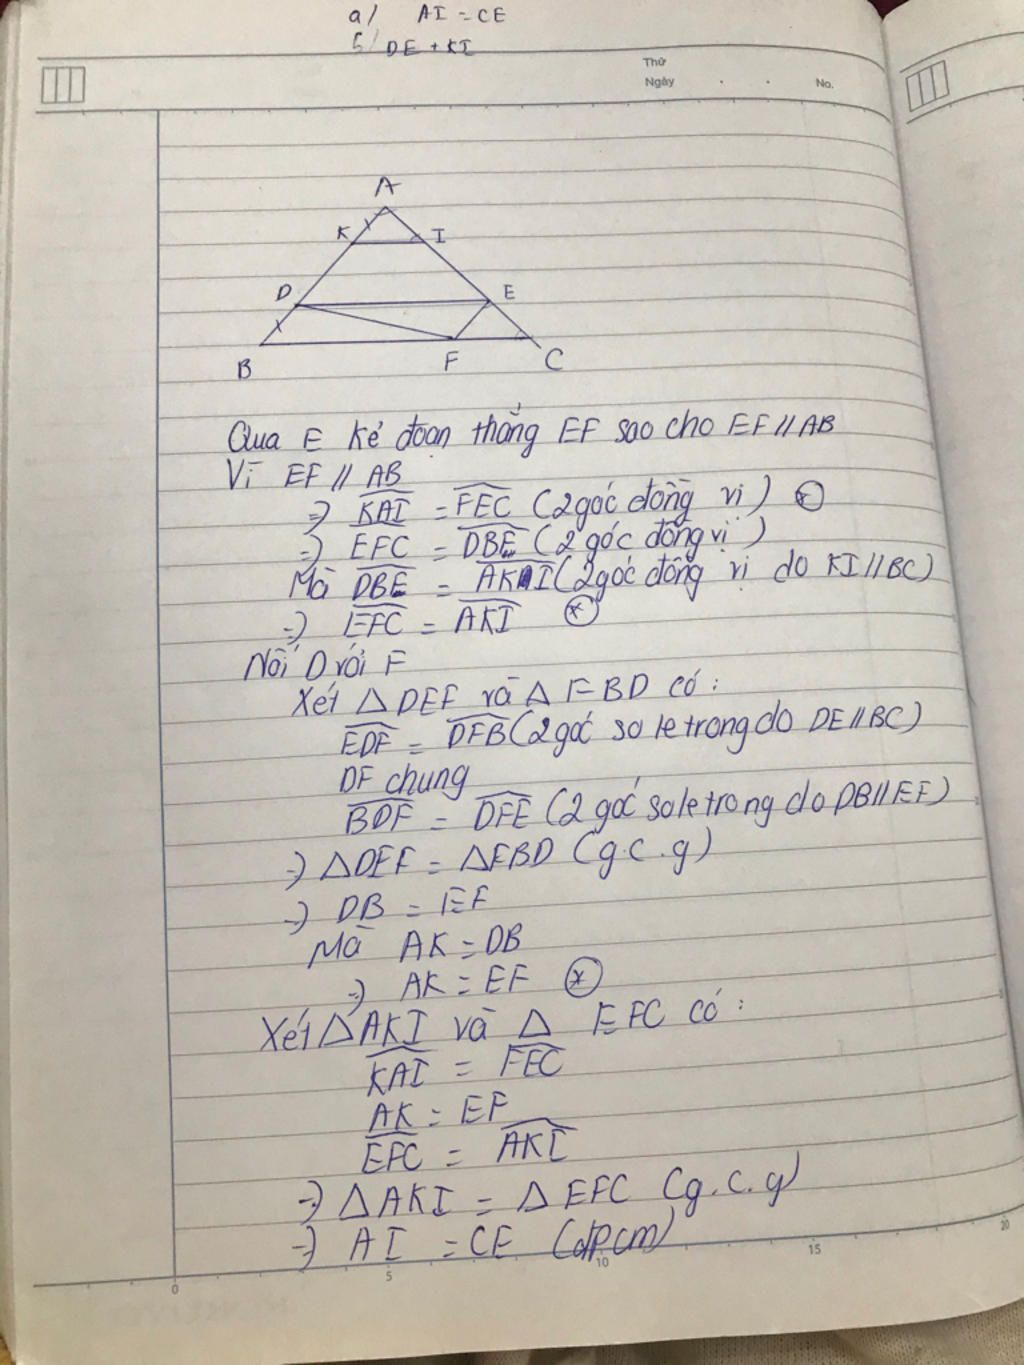 a/ AI = CE
b/ DE + KI
Thứ
Ngày . . No.
A
K I
D E
B F C
Qua E kẻ đoạn thẳng EF sao cho EF // AB
Vì EF // AB
=) KAI = FEC (2 góc đồng vị) (*)
=) EFC = DBE (2 góc đồng vị)
Mà DBE = AKI (2 góc đồng vị do KI // BC)
=) EFC = AKI (*)
Nối D với F
Xét △ DEF và △ FBD có :
EDF = DFB (2 góc so le trong do DE // BC)
DF chung
BDF = DFE (2 góc so le trong do DB // EF)
=) △DEF = △FBD (g.c.g)
=) DB = EF
Mà AK = DB
=) AK = EF (*)
Xét △AKI và △ EFC có :
KAI = FEC
AK = EF
EFC = AKI
=) △ AKI = △ EFC (g.c.g)
=) AI = CE (đpcm)
0 5 10 15 20